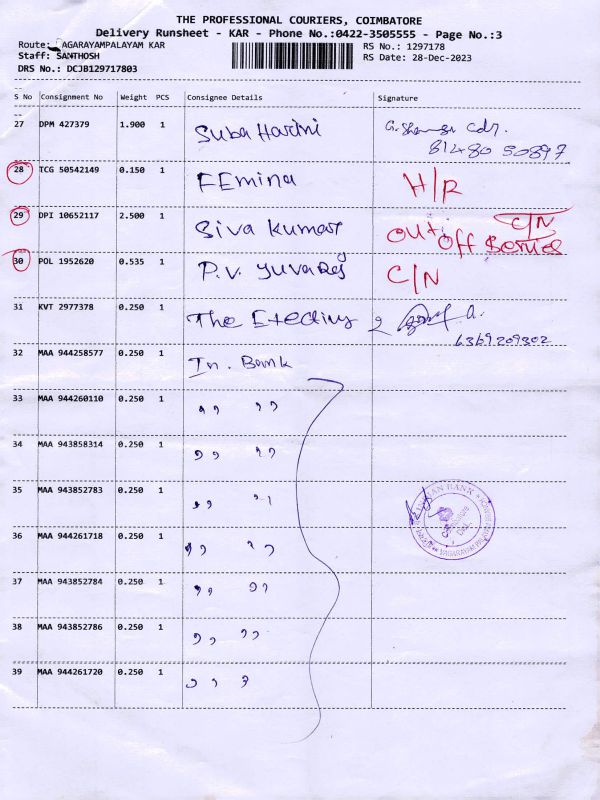 THE PROFESSIONAL COURIERS, COIMBATORE
Delivery Runsheet - KAR - Phone No.:0422-3505555 - Page No.:3
Route: AGARAYAMPALAYAM KAR RS No.: 1297178
Staff: SANTHOSH RS Date: 28-Dec-2023
DRS No.: DCJB129717803
S No Consignment No Weight PCS Consignee Details Signature
27 DPM 427379 1.900 1 Suba Harini
81480 50897
28 TCG 50542149 0.150 1 FEmina H/R
29 DPI 10652117 2.500 1 Siva Kumar C/N
out off Service
30 POL 1952620 0.535 1 P.V. yuvaraj C/N
31 KVT 2977378 0.250 1 The
6369209302
32 MAA 944258577 0.250 1 In. Bank
33 MAA 944260110 0.250 1 ,, ,,
34 MAA 943858314 0.250 1 ,, ,,
35 MAA 943852783 0.250 1 ,, ,,
36 MAA 944261718 0.250 1 ,, ,,
37 MAA 943852784 0.250 1 ,, ,,
38 MAA 943852786 0.250 1 ,, ,,
39 MAA 944261720 0.250 1 ,, ,